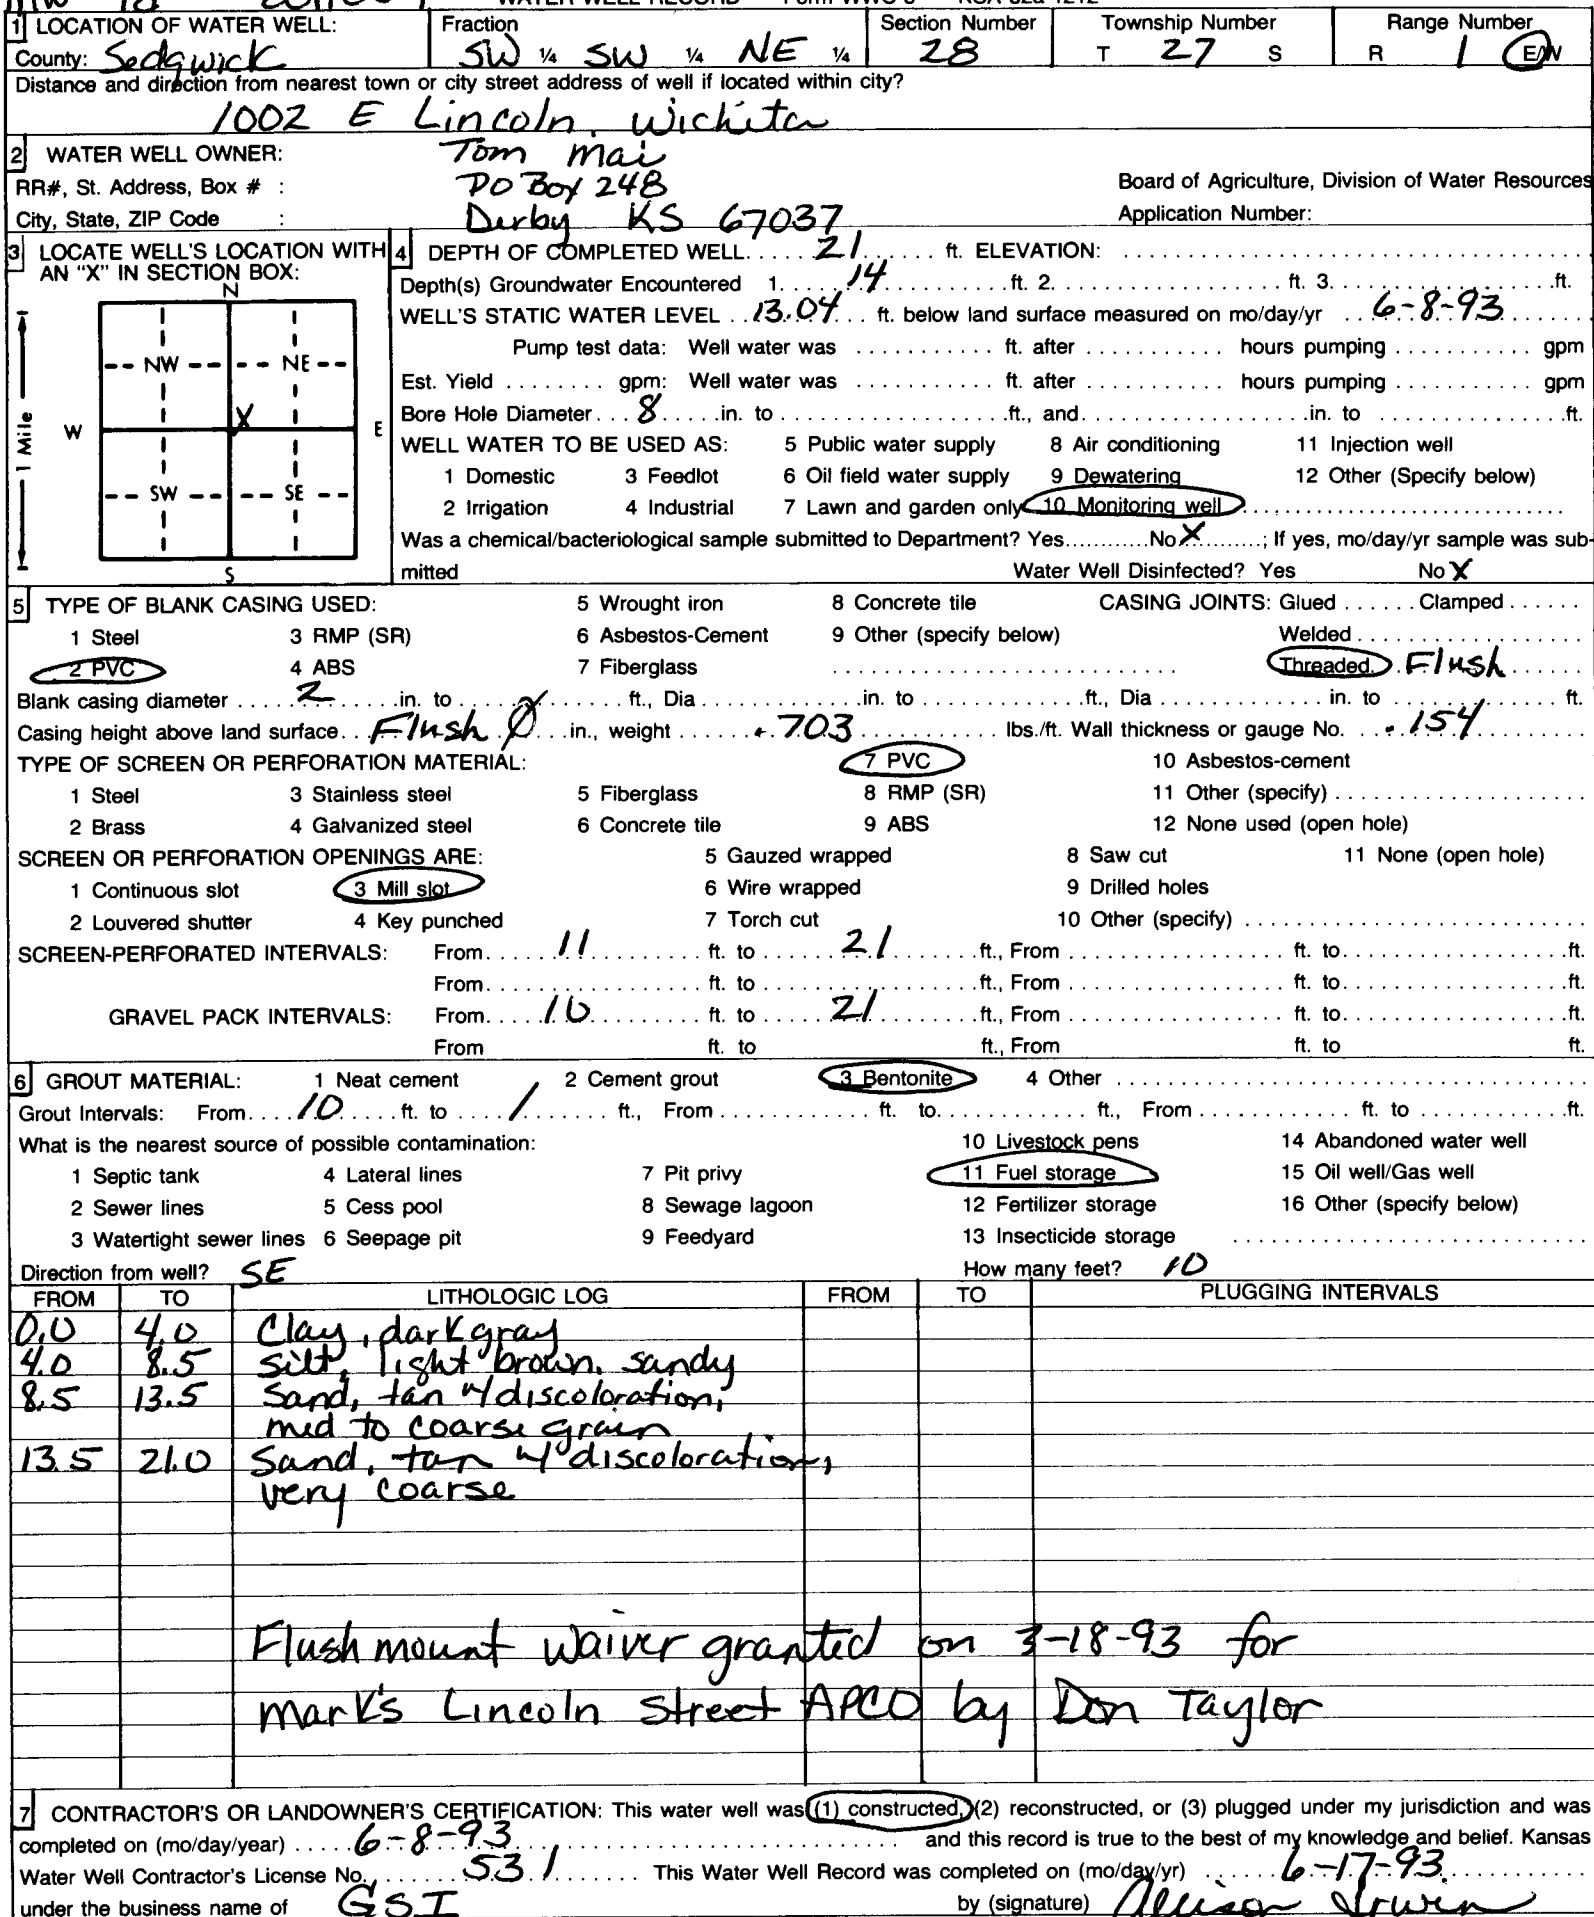 1 LOCATION OF WATER WELL: Fraction Section Number Township Number Range Number
County: Sedgwick SW ¼ SW ¼ NE ¼ 28 T 27 S R 1 E/W
Distance and direction from nearest town or city street address of well if located within city?
1002 E Lincoln, Wichita
2 WATER WELL OWNER: Tom Mai
RR#, St. Address, Box # : PO Box 248 Board of Agriculture, Division of Water Resources
City, State, ZIP Code : Derby KS 67037 Application Number:
3 LOCATE WELL'S LOCATION WITH AN "X" IN SECTION BOX:
N
NW NE
W X E
SW SE
S
1 Mile
4 DEPTH OF COMPLETED WELL..... 21 ...... ft. ELEVATION: ..........
Depth(s) Groundwater Encountered 1..... 14 ..........ft. 2..........ft. 3..........ft.
WELL'S STATIC WATER LEVEL .. 13.04 ... ft. below land surface measured on mo/day/yr .. 6-8-93 .......
Pump test data: Well water was .......... ft. after .......... hours pumping .......... gpm
Est. Yield ........ gpm: Well water was .......... ft. after .......... hours pumping .......... gpm
Bore Hole Diameter... 8 .....in. to ..........ft., and..........in. to ..........ft.
WELL WATER TO BE USED AS: 5 Public water supply 8 Air conditioning 11 Injection well
1 Domestic 3 Feedlot 6 Oil field water supply 9 Dewatering 12 Other (Specify below)
2 Irrigation 4 Industrial 7 Lawn and garden only 10 Monitoring well ..........
Was a chemical/bacteriological sample submitted to Department? Yes..........No X ........; If yes, mo/day/yr sample was sub-
mitted Water Well Disinfected? Yes No X
5 TYPE OF BLANK CASING USED: 5 Wrought iron 8 Concrete tile CASING JOINTS: Glued ...... Clamped ......
1 Steel 3 RMP (SR) 6 Asbestos-Cement 9 Other (specify below) Welded ..........
2 PVC 4 ABS 7 Fiberglass .......... Threaded. Flush ......
Blank casing diameter ..... 2 .....in. to ..........ft., Dia ..........in. to ..........ft., Dia ..........in. to ..........ft.
Casing height above land surface.. Flush 0 ...in., weight ...... .703 .......... lbs./ft. Wall thickness or gauge No. .. .154 ..........
TYPE OF SCREEN OR PERFORATION MATERIAL: 7 PVC 10 Asbestos-cement
1 Steel 3 Stainless steel 5 Fiberglass 8 RMP (SR) 11 Other (specify) ..........
2 Brass 4 Galvanized steel 6 Concrete tile 9 ABS 12 None used (open hole)
SCREEN OR PERFORATION OPENINGS ARE: 5 Gauzed wrapped 8 Saw cut 11 None (open hole)
1 Continuous slot 3 Mill slot 6 Wire wrapped 9 Drilled holes
2 Louvered shutter 4 Key punched 7 Torch cut 10 Other (specify) ..........
SCREEN-PERFORATED INTERVALS: From..... 11 ........ ft. to ...... 21 ........ft., From .......... ft. to..........ft.
From.......... ft. to ..........ft., From .......... ft. to..........ft.
GRAVEL PACK INTERVALS: From.... 10 ........ ft. to ..... 21 ........ft., From .......... ft. to..........ft.
From ft. to ft., From ft. to ft.
6 GROUT MATERIAL: 1 Neat cement 2 Cement grout 3 Bentonite 4 Other ..........
Grout Intervals: From... 10 .....ft. to .... 1 ....... ft., From .......... ft. to.......... ft., From .......... ft. to ..........ft.
What is the nearest source of possible contamination: 10 Livestock pens 14 Abandoned water well
1 Septic tank 4 Lateral lines 7 Pit privy 11 Fuel storage 15 Oil well/Gas well
2 Sewer lines 5 Cess pool 8 Sewage lagoon 12 Fertilizer storage 16 Other (specify below)
3 Watertight sewer lines 6 Seepage pit 9 Feedyard 13 Insecticide storage ..........
Direction from well? SE How many feet? 10
FROM TO LITHOLOGIC LOG FROM TO PLUGGING INTERVALS
0.0 4.0 Clay, dark gray
4.0 8.5 Silt, light brown, sandy
8.5 13.5 Sand, tan w/discoloration,
med to coarse grain
13.5 21.0 Sand, tan w/discoloration,
very coarse
Flushmount waiver granted on 3-18-93 for
Mark's Lincoln Street APCO by Don Taylor
7 CONTRACTOR'S OR LANDOWNER'S CERTIFICATION: This water well was (1) constructed, (2) reconstructed, or (3) plugged under my jurisdiction and was
completed on (mo/day/year) ..... 6-8-93 .......... and this record is true to the best of my knowledge and belief. Kansas
Water Well Contractor's License No. ....... 531 ........ This Water Well Record was completed on (mo/day/yr) ...... 6-17-93 ..........
under the business name of GSI by (signature) Allison Irwin